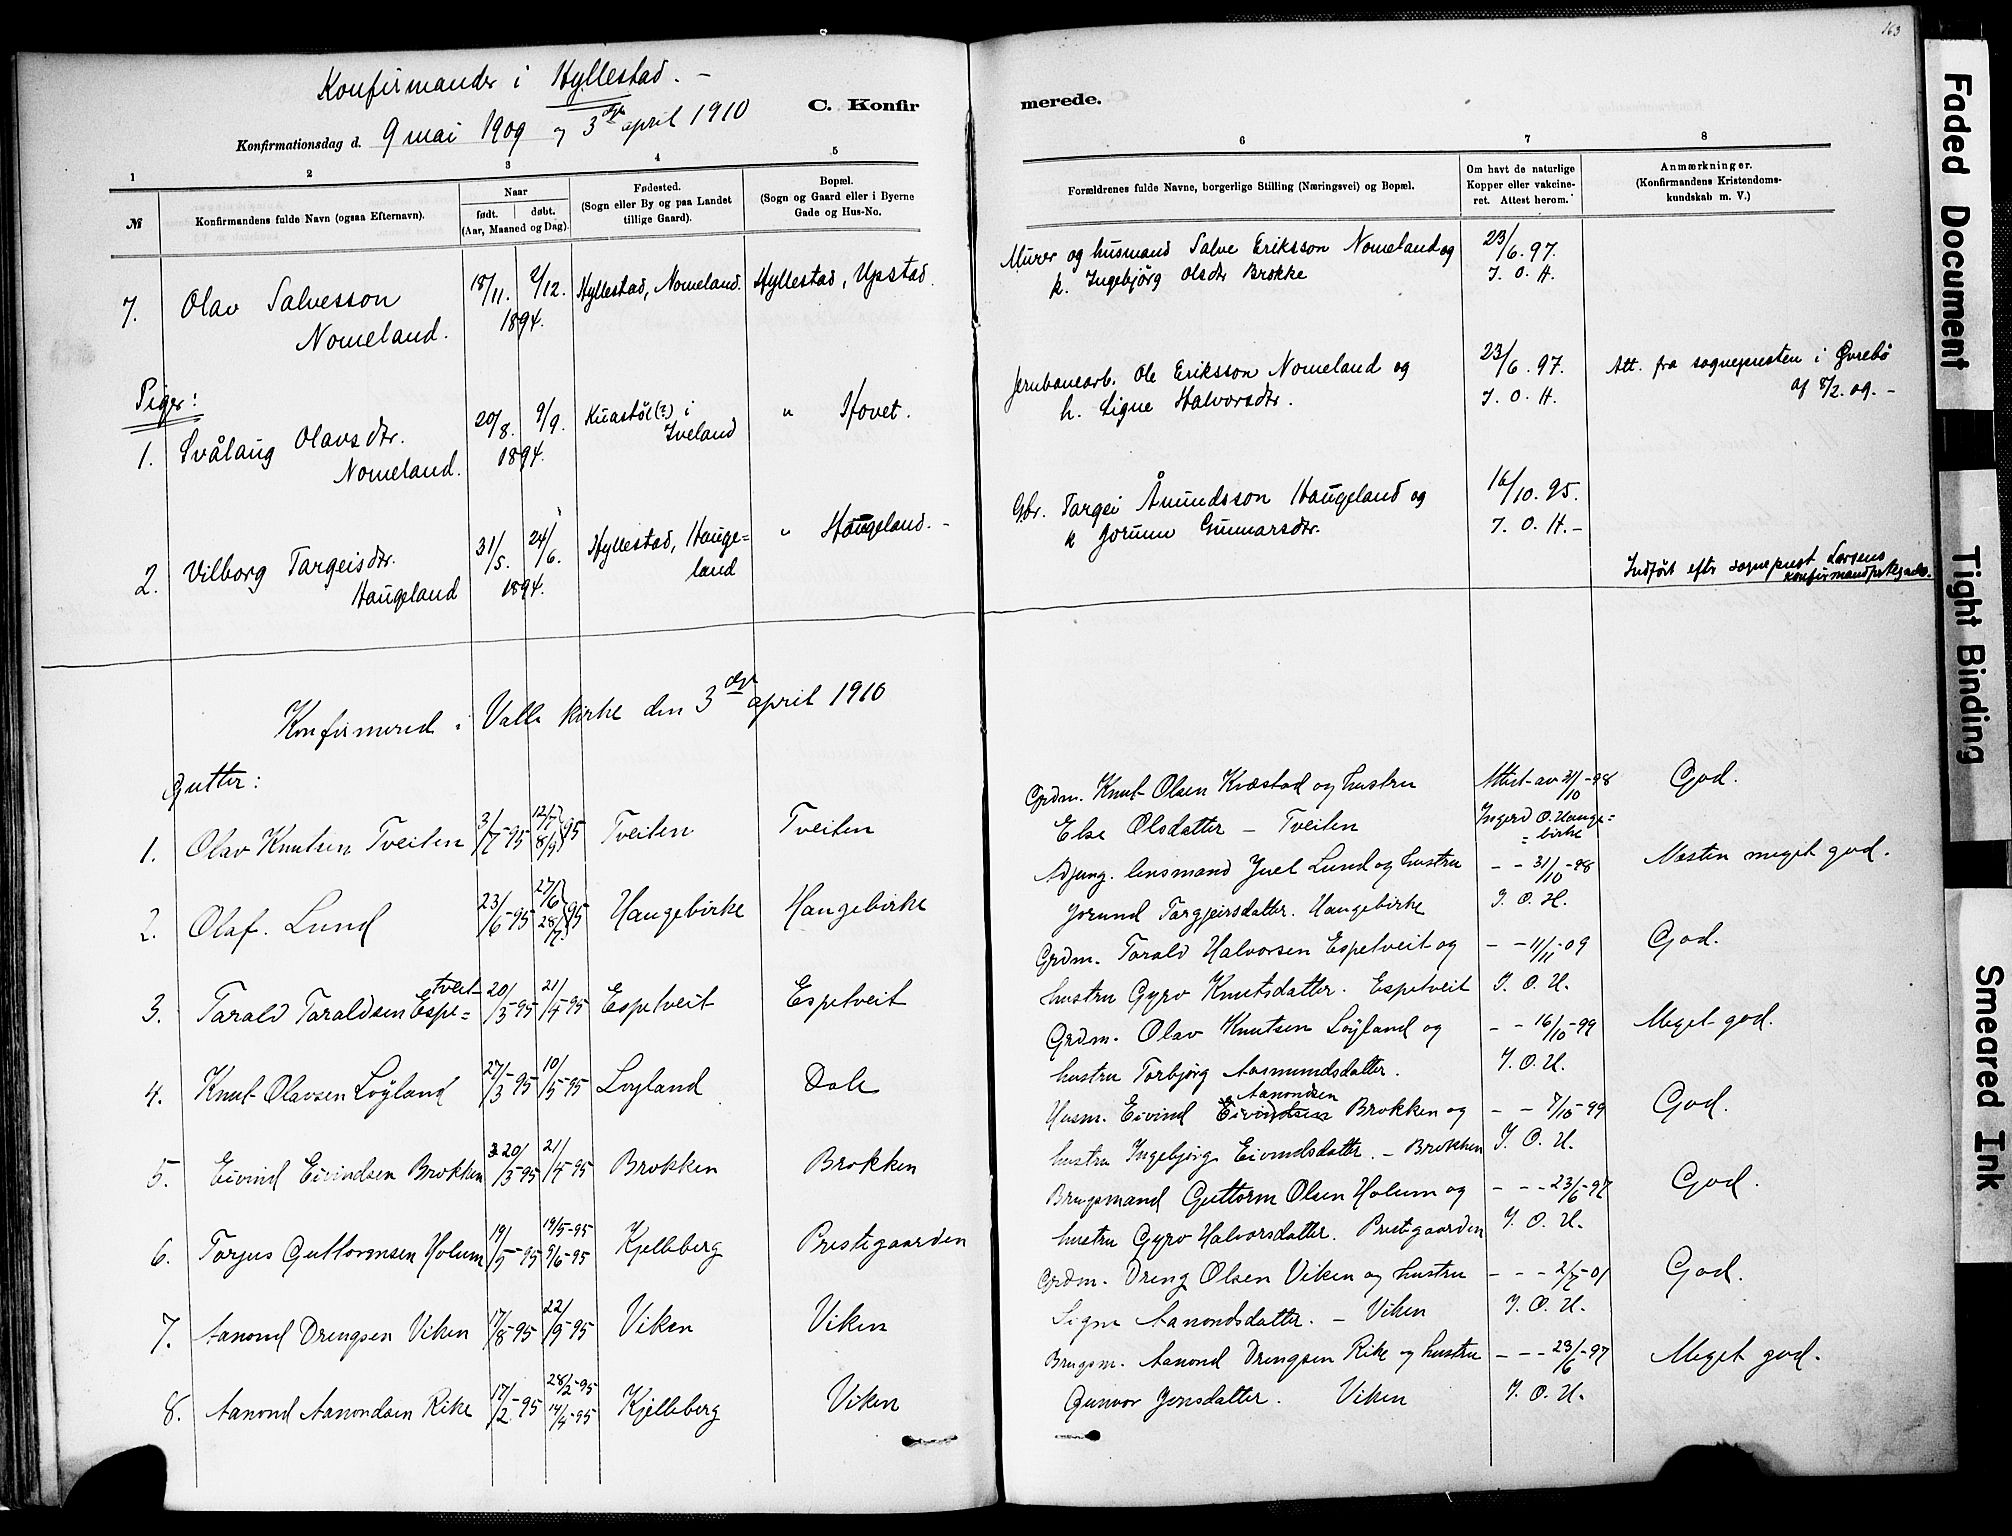 163
Konfirmander i Hyllestad. –
Konfirmationsdag d. 9 mai 1909 og 3die april 1910
C. Konfir
merede.
1 2 3 4 5
6 7 8
№
Konfirmandens fulde Navn (ogsaa Efternavn).
Naar
født. døbt.
(Aar, Maaned og Dag).
Fødested.
(Sogn eller By og paa Landet
tillige Gaard).
Bopæl.
(Sogn og Gaard eller i Byerne
Gade og Hus-No.
Forældrenes fulde Navne, borgerlige Stilling (Næringsvei) og Bopæl.
Om havt de naturlige
Kopper eller vakcine-
ret. Attest herom.
Anmærkninger.
(Konfirmandens Kristendoms-
kundskab m. V.)
7. Olav Salvesson 18/11. 2/12. Hyllestad, Nomeland. Hyllestad, Upstad.
Nomeland. 1894.
Murer og husmand Salve Eriksson Nomeland og 23/6. 97.
k. Ingebjørg Olsdtr Brokke J. O. H.
Piger:
1. Svålaug Olavsdtr. 20/8. 9/9. Kuastöl (?) i " Hovet.
Nomeland. 1894. Iveland
Jernbanearb. Ole Eriksson Nomeland og 23/6. 97. Att. fra sognepresten i Øvrebö
h. Signe Halvorsdtr. J. O. H. af 8/2. 09. –
2. Vilborg Targeisdtr. 31/5. 24/6. Hyllestad, Hauge= " Haugeland. –
Haugeland 1894. land
Gbr. Targei Åmundsson Haugeland og 16/10. 95.
k Jorunn Gunnarsdtr. J. O. H. –
Indført efter sogneprest Larsens
konfirmandprotokol.
Konfirmered i Valle kirke den 3die april 1910
Gutter:
1. Olav Knutsen Tveiten 3/7-95 12/7 8/9 95 Tveiten Tveiten
Grdm. Knut Olsen Kvæstad og hustru Attest av 31/10-98 God.
Else Olsdatter – Tveiten Ingerd O. Hauge=
=birke
2. Olaf. Lund 23/6-95 27/6 28/7. 95 Haugebirke Haugebirke
Adjung. lensmand Juel Lund og hustru – – 31/10-98 Næsten meget god.
Jorund Targjeirsdatter. Haugebirke J. O. H.
3. Tarald Taraldsen Espe= 20/3-95 21/4-95 Espetveit Espetveit
tveit
Grdm. Tarald Halvorsen Espetveit og – – 11/11-09 God.
hustru Gyro Knutsdatter. Espetveit J. O. H.
4. Knut Olavsen Löyland 27/3-95 10/5-95 Löyland Dale
Grdm. Olav Knutsen Löyland og – – 16/10-99 Meget god.
hustru Torbjörg Aasmundsdatter. J. O. H.
5. Eivind Eivindsen Brokken 20/3-95 21/4-95 Brokken Brokken
Aanondsen
Husm. Eivind Eivindsen Brokken og – – 7/10-99 God.
hustru Ingebjörg Eivindsdatter. – Brokken J. O. H.
6. Torjus Guttormsen Holum 19/5-95 19/5-95 9/6-95 Kjelleberg Prestegaarden
Brugsmand Guttorm Olsen Holum og – – – 23/6-97 God.
hustru Gyro Halvorsdatter. Prestegaarden J. O. H.
7. Aanond Drengsen Viken 17/8-95 22/9-95 Viken Viken
Grdm. Dreng Olsen Viken og hustru – – – 2/7-01 God.
Signe Aanondsdatter. – Viken J. O. H.
8. Aanond Aanondsen Rike 17/2-95 28/2-95 14/4-95 Kjelleberg Viken
Brugsm. Aanond Drengsen Rike og hustru – – – 23/6-97 Meget god.
Gunvor Jonsdatter. Viken J. O. H.
Faded Document
Tight Binding
Smeared Ink